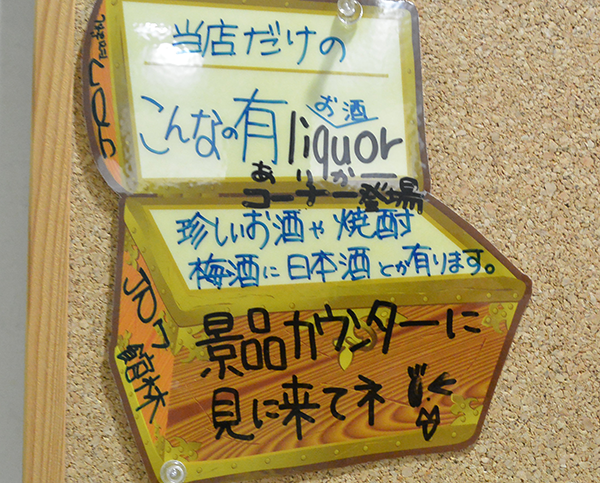 当店だけの
お酒
こんなの有liquor
ありかー
コーナー登場
珍しいお酒や焼酎
梅酒に日本酒とか有ります。
景品カウンターに
見に来てネ
館林